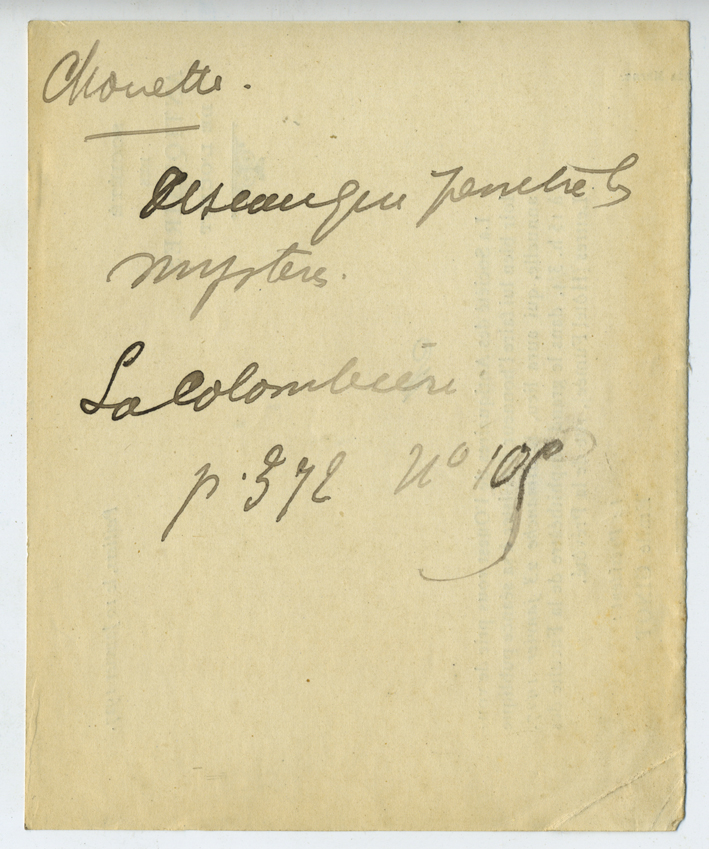 Chouette.
oiseau qui penetre les
mysteres.
La Colombière
p. 372 No 105